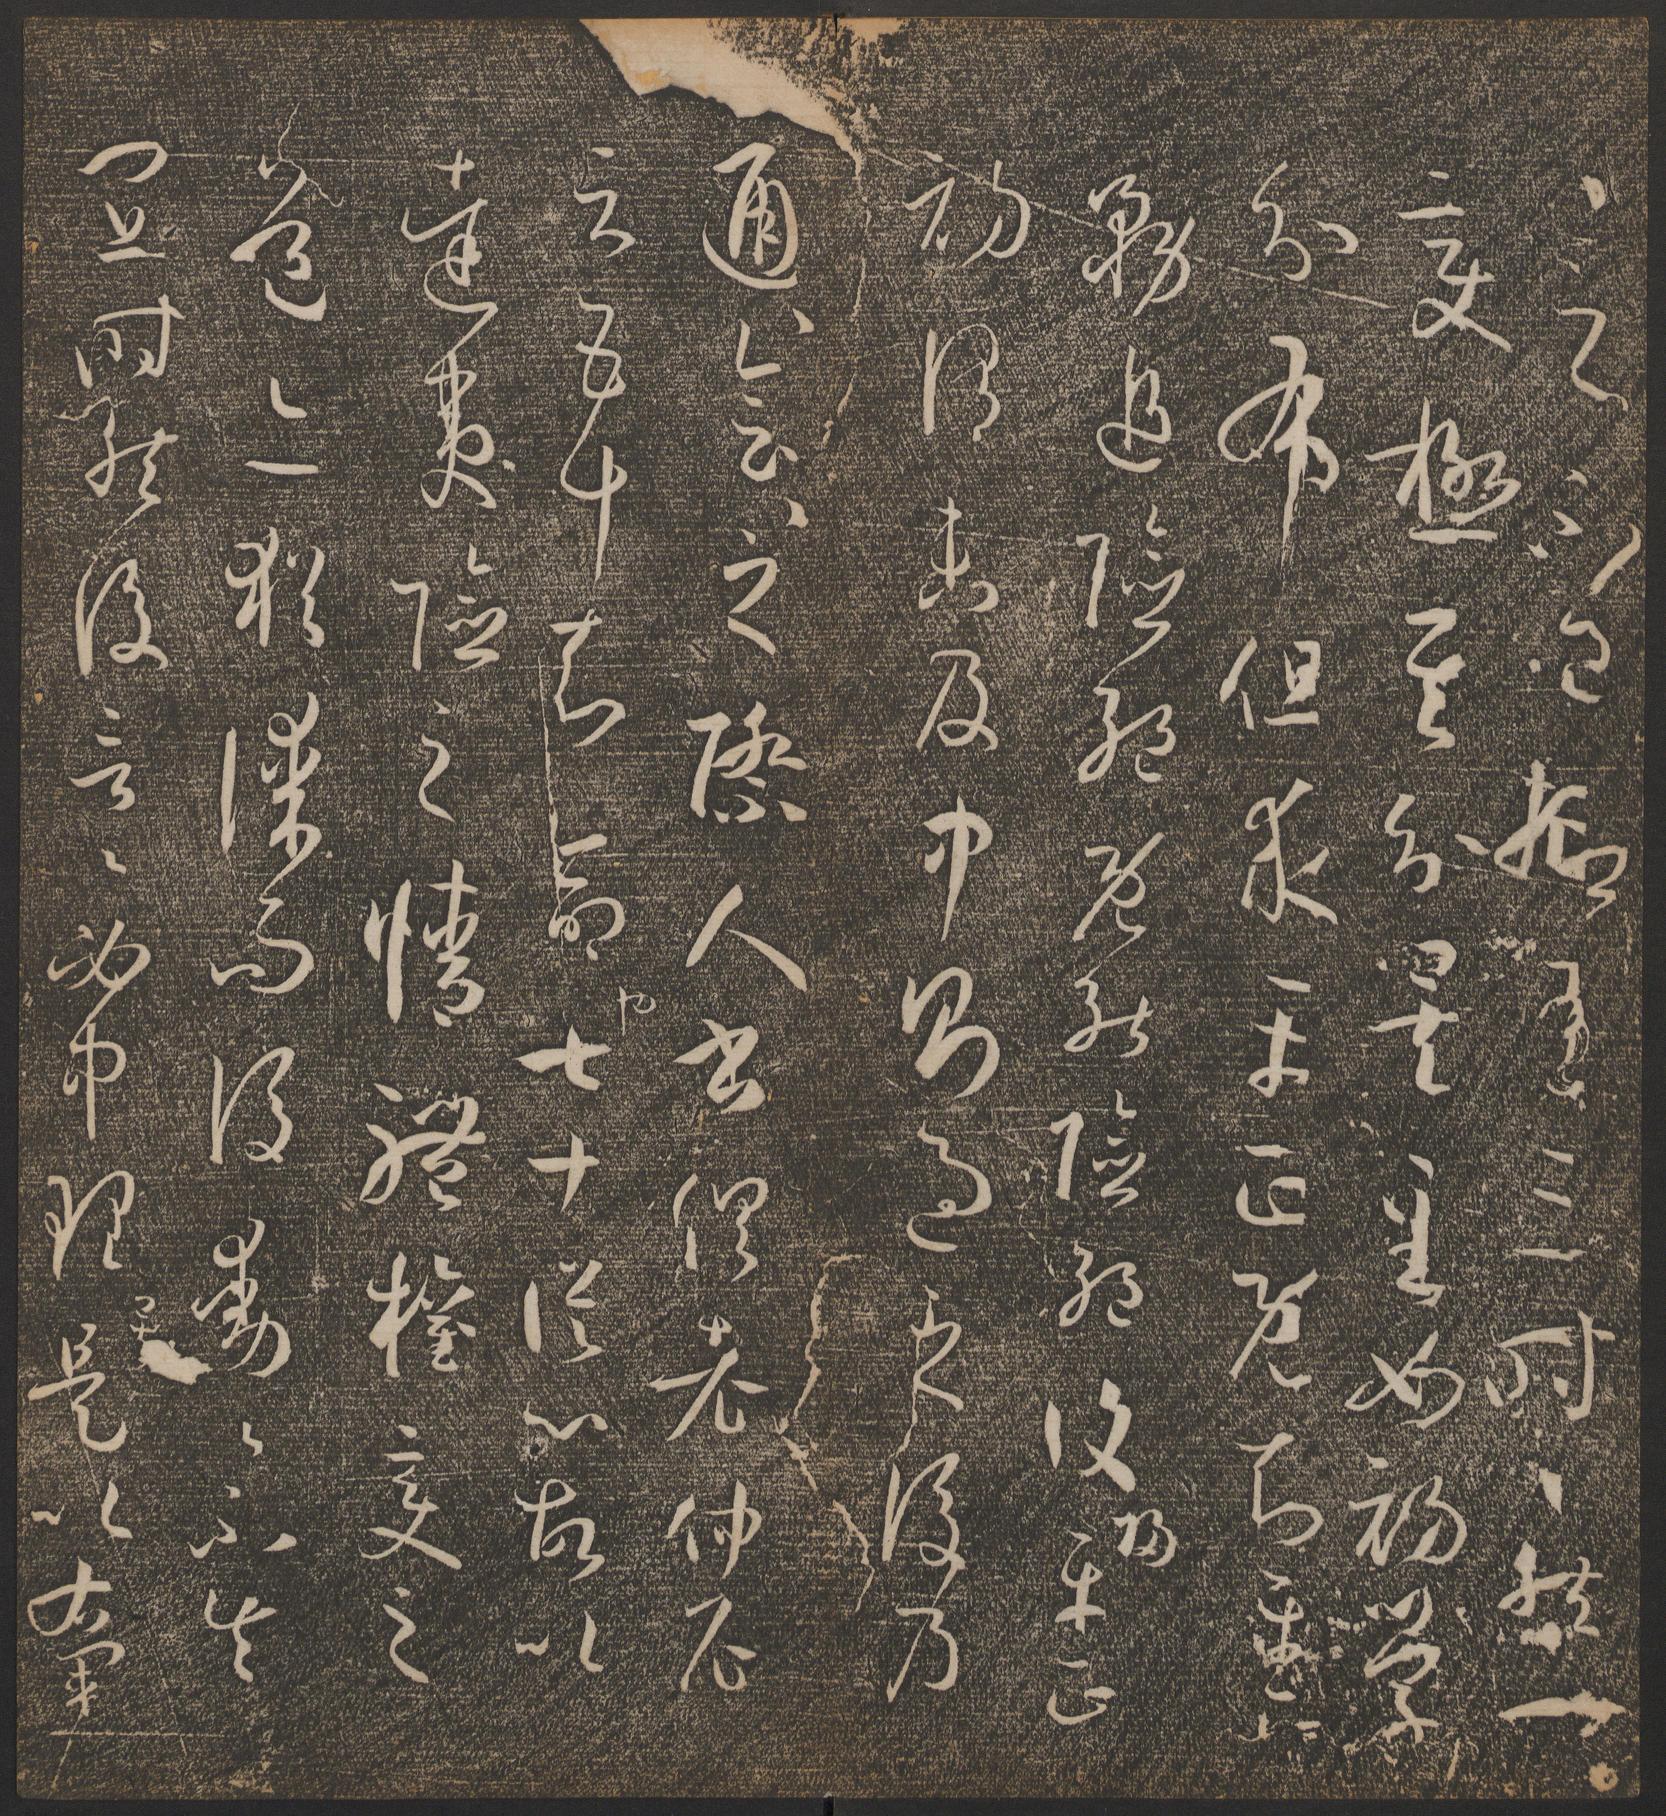 〻之不已抑有三時〻然一
變極其分矣至如初學
分布但求平正既知平正
務追險絕既能險絕復歸平正
初謂未及中則過之後乃
通會〻之際人書俱老仲尼
云五十知命也七十從心故以
達夷險之情體權變之
道亦猶謀而後動〻不失
宜時然後言〻必中理矣是以右軍